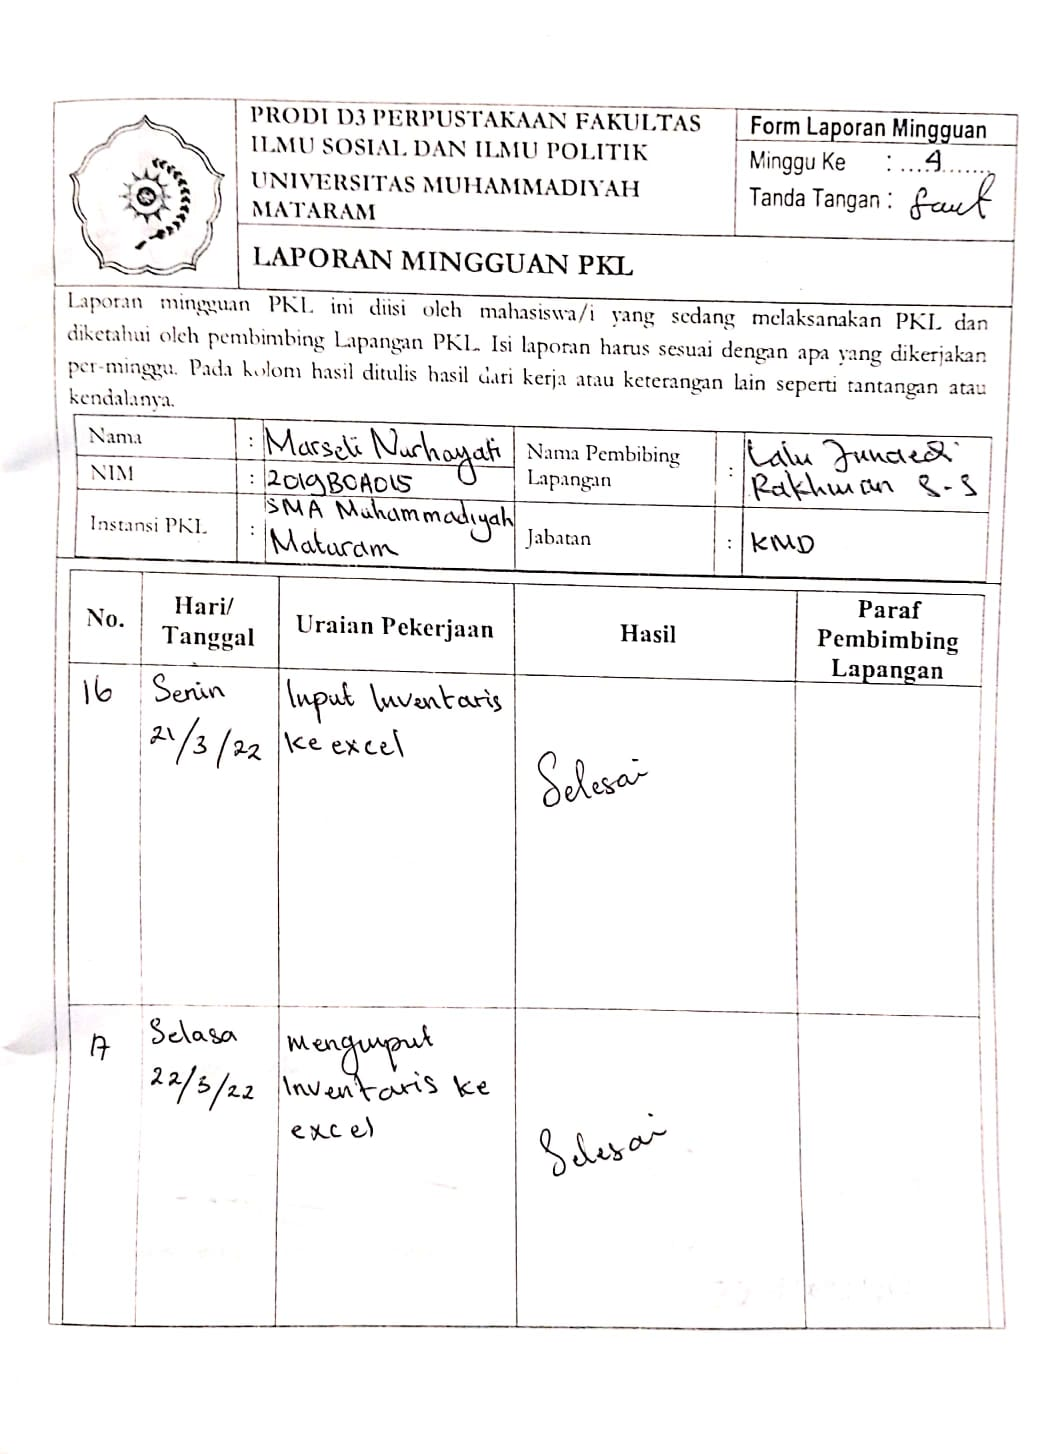 PRODI D3 PERPUSTAKAAN FAKULTAS
ILMU SOSIAL DAN ILMU POLITIK
UNIVERSITAS MUHAMMADIYAH
MATARAM
Form Laporan Mingguan
Minggu Ke : ....4.......
Tanda Tangan :
LAPORAN MINGGUAN PKL
Laporan mingguan PKL ini diisi oleh mahasiswa/i yang sedang melaksanakan PKL dan
diketahui oleh pembimbing Lapangan PKL. Isi laporan harus sesuai dengan apa yang dikerjakan
per-minggu. Pada kolom hasil ditulis hasil dari kerja atau keterangan lain seperti tantangan atau
kendalanya.
Nama : Marseli Nurhayati
NIM : 2019BCA015
Instansi PKL : SMA Muhammadiyah
Mataram
Nama Pembibing
Lapangan : Lalu Junaedi
Rakhman S.S
Jabatan : KMD
No.
Hari/
Tanggal
Uraian Pekerjaan
Hasil
Paraf
Pembimbing
Lapangan
16
Senin
21/3/22
Input Inventaris
ke excel
Selesai
17
Selasa
22/3/22
Menginput
Inventaris ke
excel
Selesai